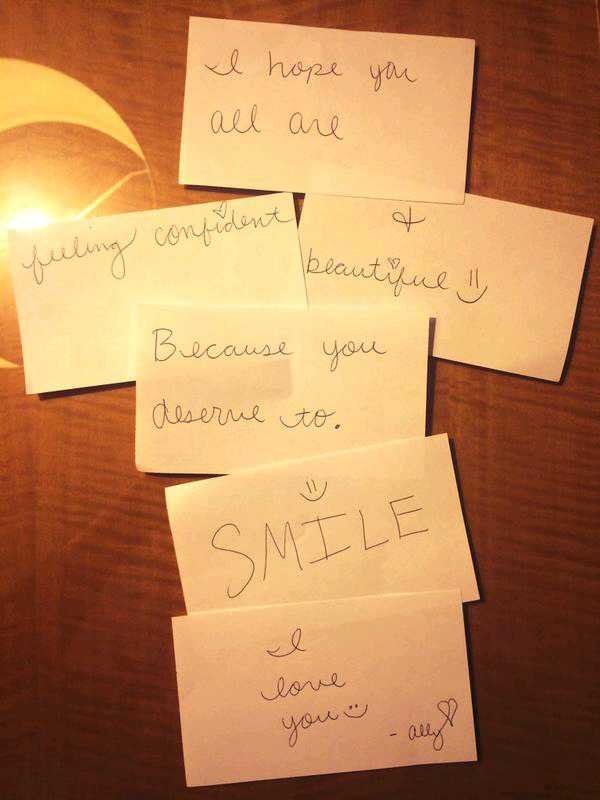 I hope you
all are
feeling confident
&
beautiful
Because you
deserve to.
SMILE
I
love
you :)
- ally